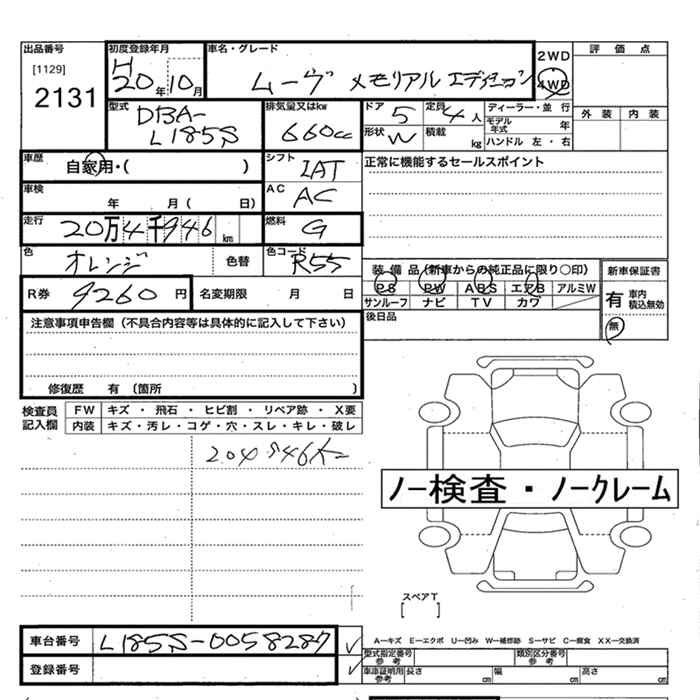 出品番号
[1129]
2131
初度登録年月
H
20年10月
車名・グレード
ムーヴ メモリアル エディション
2WD
4WD
評価点
外装 内装
型式
DBA-
L185S
排気量又はkw
660cc
ドア 5
定員 4人
形状 W
積載 kg
ディーラー・並行
モデル年式 年
ハンドル 左・右
車歴
自家用・( )
シフト
IAT
正常に機能するセールスポイント
車検
年 月( 日)
AC
AC
走行
20万4千946km
燃料
G
色
オレンジ
色替
色コード
R55
装備品(新車からの純正品に限り○印)
PS PW ABS エアB アルミW
サンルーフ ナビ TV カワ
新車保証書
有 車内積込無効
無
R券
9260円
名変期限 月 日
後日品
注意事項申告欄(不具合内容等は具体的に記入して下さい)
修復歴 有 (箇所 )
検査員記入欄
FW キズ・飛石・ヒビ割・リペア跡・X要
内装 キズ・汚レ・コゲ・穴・スレ・キレ・破レ
204946K
ノー検査・ノークレーム
スペアT
[ ]
車台番号
L185S-0058287
登録番号
A―キズ E―エクボ U―凹み W―補修跡 S―サビ C―腐食 XX―交換済
型式指定番号 参考
類別区分番号 参考
車庫証明用 参考
長さ cm 幅 cm 高さ cm